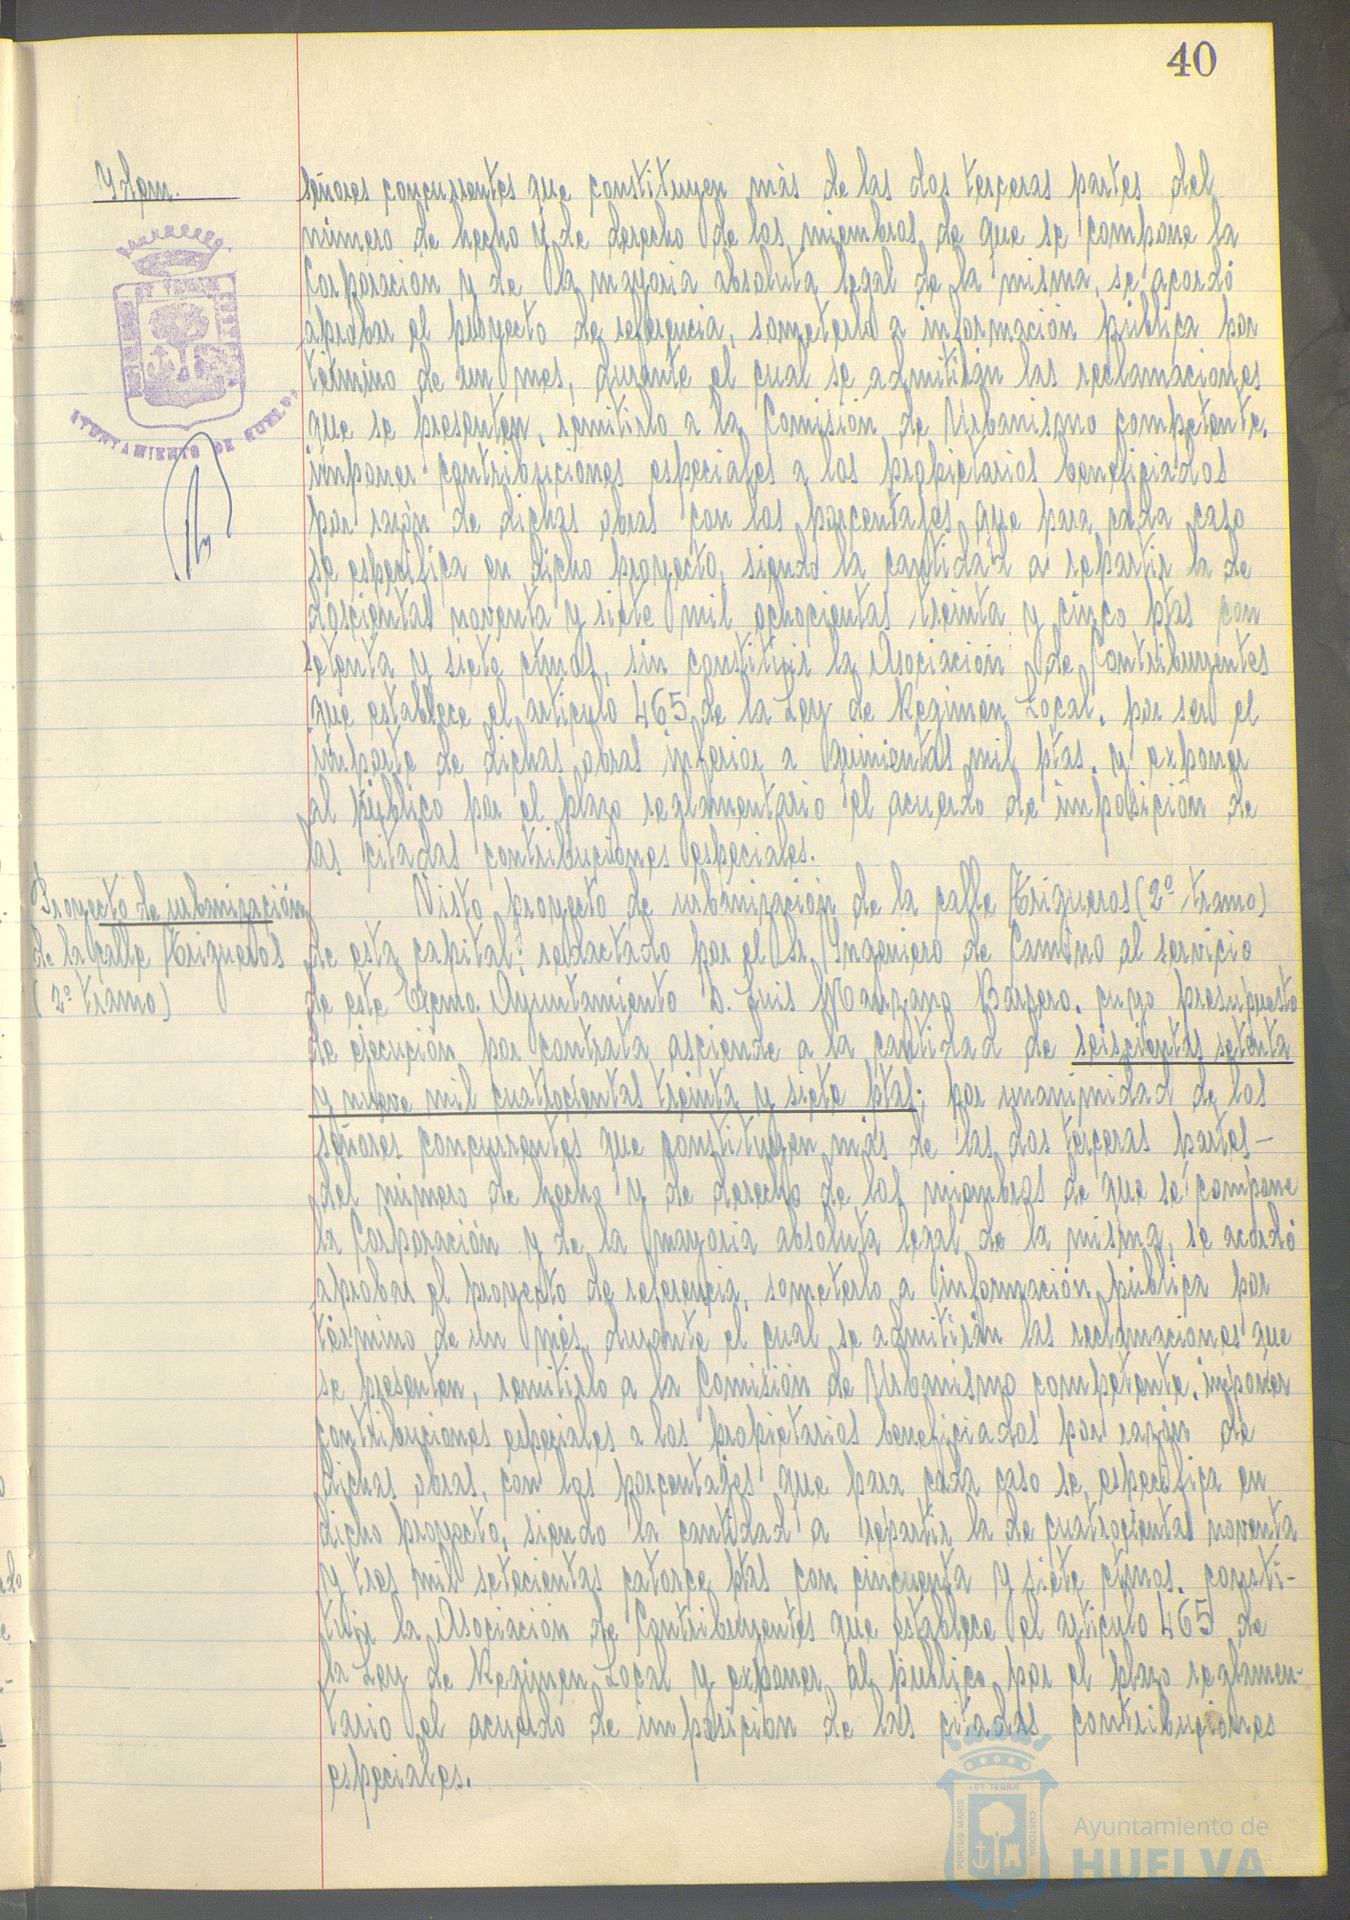 40
Ydem.
señores concurrentes que constituyen más de las dos terceras partes del
número de hecho y de derecho de los miembros de que se compone la
Corporación y de la mayoria absoluta legal de la misma, se acordó
aprobar el proyecto de referencia, someterlo a información pública por
término de un mes, durante el cual se admitirán las reclamaciones
que se presenten, remitirlo a la Comisión de Urbanismo competente,
imponer contribuciones especiales a los propietarios beneficiados
por razón de dichas obras con los porcentajes que para cada caso
se especifica en dicho proyecto, siendo la cantidad a repartir la de
doscientas noventa y siete mil ochocientas treinta y cinco ptas con
setenta y siete ctmos, sin constituir la Asociación de Contribuyentes
que establece el artículo 465 de la Ley de Regimen Local, por ser el
importe de dichas obras inferior a quinientas mil ptas. y exponer
al público por el plazo reglamentario el acuerdo de imposición de
las citadas contribuciones especiales.
AYUNTAMIENTO DE HUELVA
Proyecto de urbanización
de la calle Trigueros
(2º tramo)
Visto proyecto de urbanización de la calle Trigueros (2º tramo)
de esta capital; redactado por el Sr. Yngeniero de Camino al servicio
de este Excmo. Ayuntamiento D. Luis Manzano Barrero, cuyo presupuesto
de ejecución por contrata asciende a la cantidad de seiscientas setenta
y nueve mil cuatrocientas treinta y siete ptas; por unanimidad de los
señores concurrentes que constituyen más de las dos terceras partes-
del número de hecho y de derecho de los miembros de que se compone
la Corporación y de la mayoria absoluta legal de la misma, se acordó
aprobar el proyecto de referencia, someterlo a información pública por
término de un mes, durante el cual se admitirán las reclamaciones que
se presenten, remitirlo a la Comisión de Urbanismo competente, imponer
contribuciones especiales a los propietarios beneficiados por razón de
dichas obras, con los porcentajes que para cada caso se especifica en
dicho proyecto, siendo la cantidad a repartir la de cuatrocientas noventa
y tres mil setecientas catorce ptas con cincuenta y siete ctmos. consti-
tuir la Asociación de Contribuyentes que establece el artículo 465 de
la Ley de Regimen Local y exponer al público por el plazo reglamen-
tario el acuerdo de imposición de las citadas contribuciones
especiales.
ET TERRÆ
PORTUS MARIS
CUSTODIA
Ayuntamiento de
HUELVA